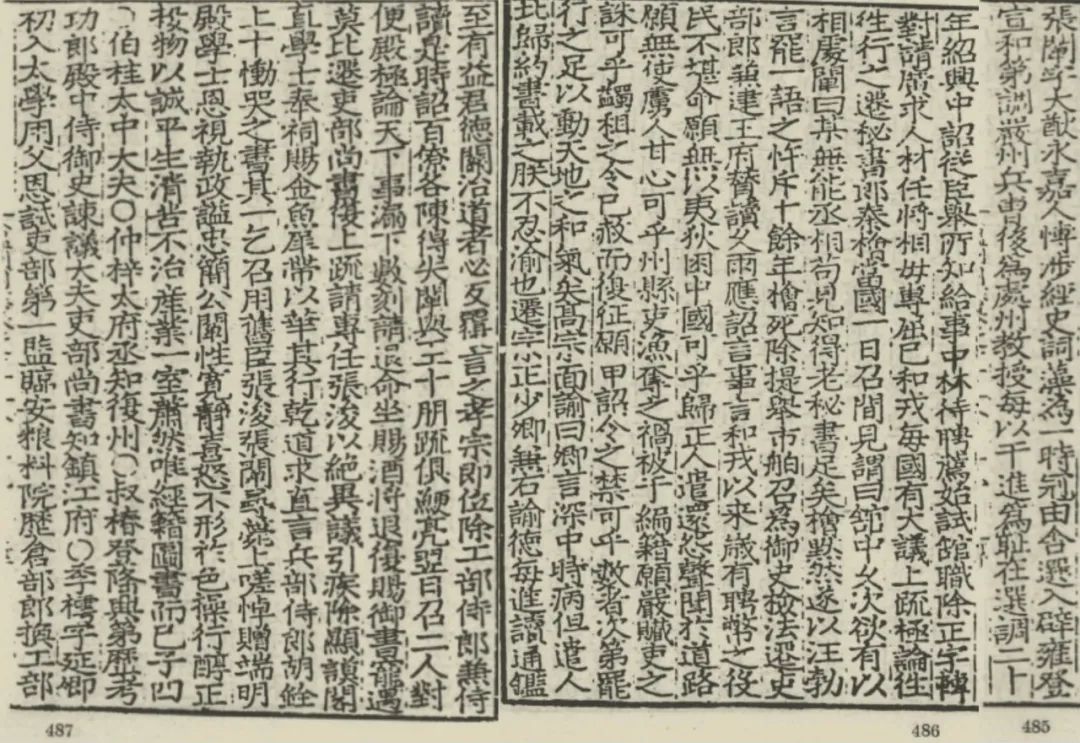 張闡字大猷永嘉人博涉經史詞藻為一時冠由舍選入辟雍登
宣和第調嚴州兵曹後為處州教授每以干進為恥在選調二十
年紹興中詔從臣舉所知給事中林待聘薦始試館職除正字轉
對請廣求人材任將相毋專屈已和戎每國有大議上疏極論徃
徃行之遷秘書郎秦檜當國一日召間見謂曰舘中久次欲有以
相處闡曰某無能丞相苟見知得老秘書足矣檜黙然遂以汪勃
言罷一語之忤斥十餘年檜死除提舉市舶召為御史檢法遷吏
部郎兼建王府贊讀久雨應詔言事言和戎以来歲有聘幣之役
民不堪命願無以夷狄困中國可乎歸正人遣還怨聲聞於道路
願無使虜人甘心可乎州縣吏漁奪之禍被于編籍願嚴贓吏之
誅可乎蠲租之令已赦而復征願申詔令之禁可乎數者次第罷
行之足以動天地之和氣矣髙宗面諭曰卿言深中時病但遣人
北歸約書載之朕不忍渝也遷宗正少卿兼右諭德每進讀通鑑
至有益君德關治道者必反覆言之孝宗即位除工部侍郎兼侍
讀是時詔百僚各陳得失闡與王十朋疏俱鯁亮翌日召二人對
便殿極論天下事漏下數刻請退命坐賜酒將退復賜御書寵遇
莫比遷吏部尚書復上疏請專任張浚以絶異議引疾除顯謨閣
直學士奉祠賜金魚犀帶以華其行乾道求直言兵部侍郎胡銓
上十慟哭之書其一乞召用舊臣張浚張闡尋薨上嗟悼贈端明
殿學士恩視執政謚忠簡公闡性寬靜喜怒不形於色操行醇正
投物以誠平生清苦不治産業一室蕭然唯經籍圖書而已子四
○伯桂太中大夫○仲梓太府丞知復州○叔椿登隆興第歷考
功郎殿中侍御史諫議大夫吏部尚書知鎮江府○季樗字延卿
初入太學用父恩試吏部第一監臨安粮料院歷倉部郎換工部
485
486
487